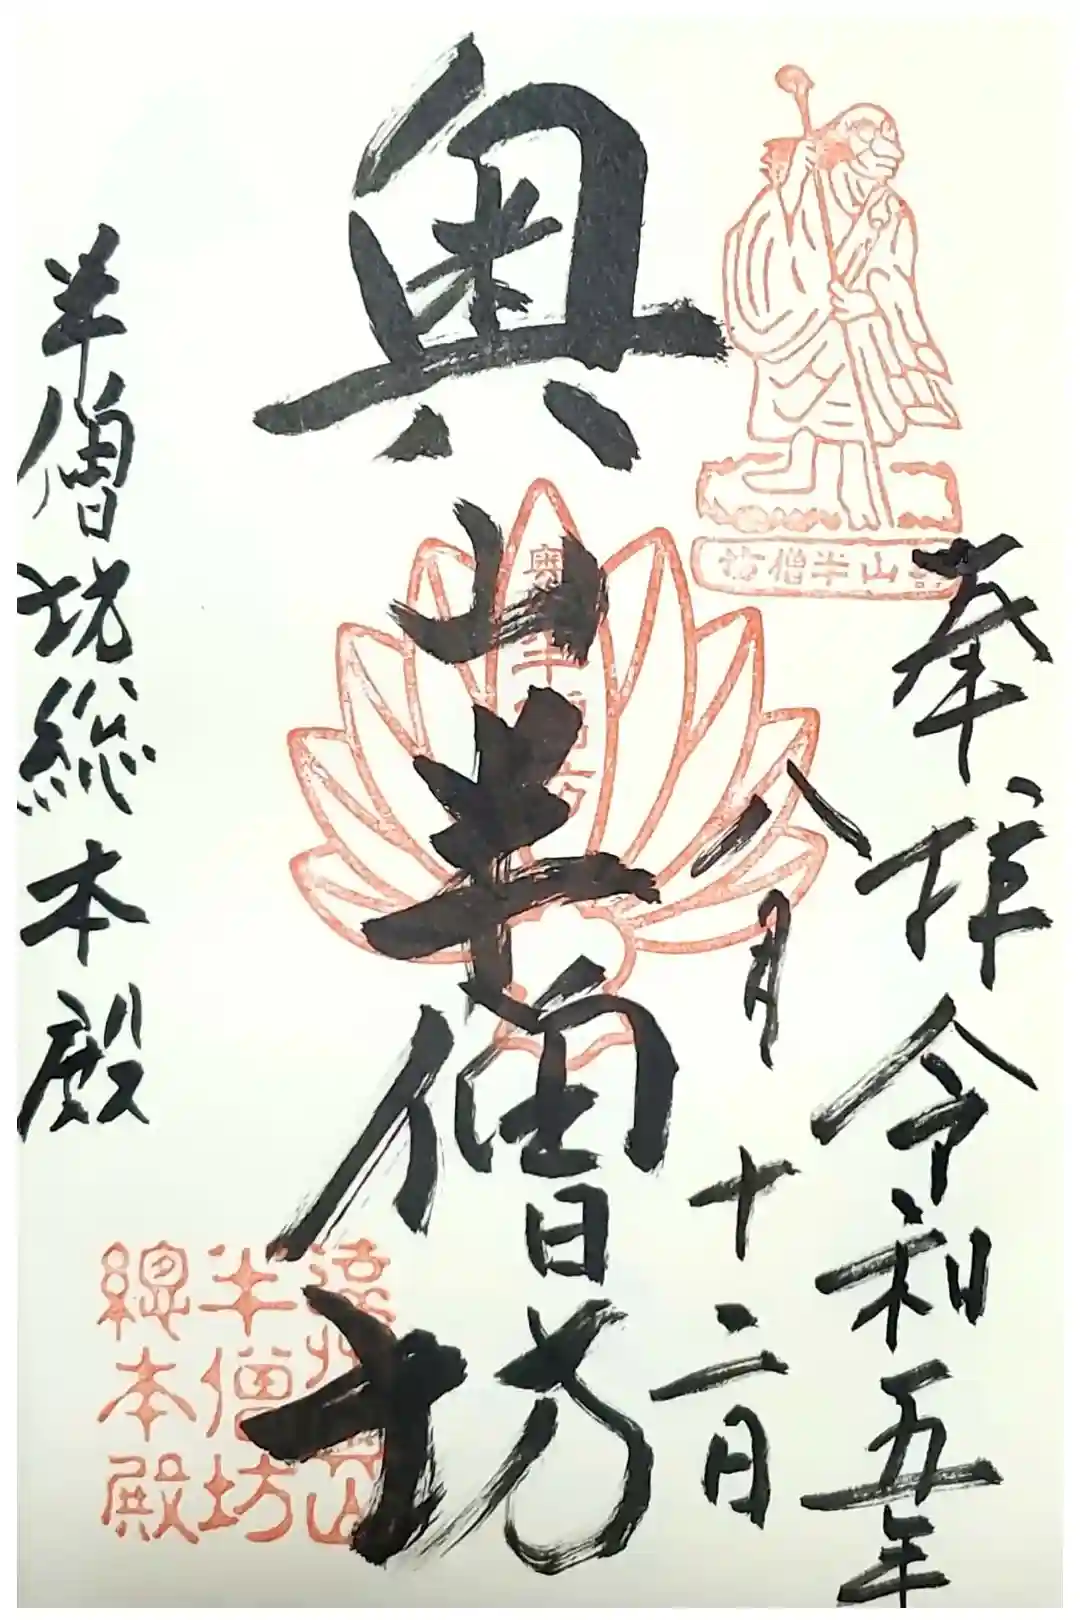 奉拝令和五年
八月十二日
奥山半僧坊
半僧坊総本殿
坊僧半山
半僧坊
總本殿